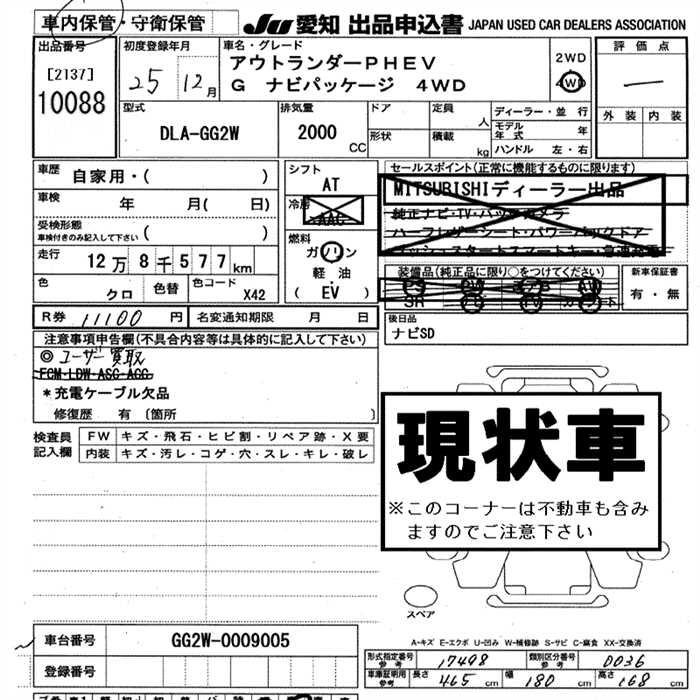 車内保管・守衛保管
JU 愛知 出品申込書 JAPAN USED CAR DEALERS ASSOCIATION
出品番号
[2137]
10088
初度登録年月
25年 12月
車名・グレード
アウトランダーPHEV
G ナビパッケージ 4WD
2WD
4WD
評価点
—
外装 内装
型式
DLA-GG2W
排気量
2000
CC
ドア
形状
定員
人
積載
kg
ディーラー・並行
モデル年式 年
ハンドル 左・右
車歴
自家用・( )
車検
年 月( 日)
受検形態
車検付きのみ記入して下さい ( )
走行
12万8千577km
色
クロ
色替
色コード
X42
シフト
AT
冷房
AAC
燃料
ガソリン
軽油・
( EV )
セールスポイント(正常に機能するものに限ります)
MITSUBISHIディーラー出品
純正ナビ・TV・バックカメラ
ハーフレザーシート・パワーバックドア
プッシュスタートスマートキー・急速充電
装備品(純正品に限り○をつけてください)
PS PW エアB AW
SR TV カセット
新車保証書
有・無
R券 11100 円
名変通知期限 月 日
後日品
ナビSD
注意事項申告欄(不具合内容等は具体的に記入して下さい)
◎ ユーザー買取
FCM-LDW-ASC-ACC
*充電ケーブル欠品
修復歴 有 〔箇所 〕
検査員記入欄
FW キズ・飛石・ヒビ割・リペア跡・X要
内装 キズ・汚レ・コゲ・穴・スレ・キレ・破レ
現状車
※このコーナーは不動車も含み
ますのでご注意下さい
スペア
A-キズ E-エクボ U-凹み W-補修跡 S-サビ C-腐食 XX-交換済
車台番号
GG2W-0009005
登録番号
形式指定番号
参考
17498
類別区分番号
参考
0036
車庫証明用
参考
長さ 465 cm
幅 180 cm
高さ 168 cm